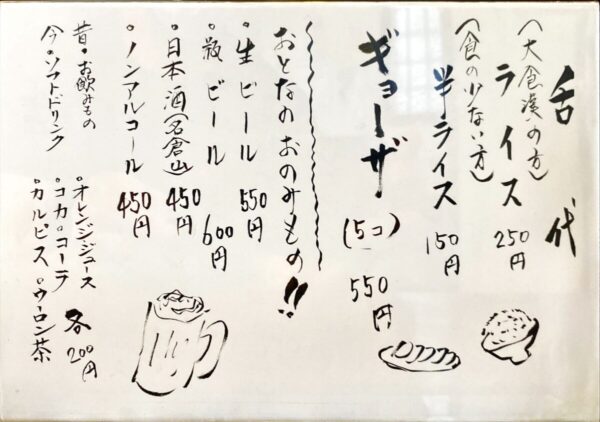 舌代
(大食漢の方)
ライス 250円
(食の少ない方)
半ライス 150円
ギョーザ (5コ) 550円
おとなのおのみもの!!
・生ビール 550円
・瓶ビール 600円
・日本酒(名倉山) 450円
・ノンアルコール 450円
昔・お飲みもの
今・ソフトドリンク
・オレンジジュース
・コカ・コーラ 各200円
・カルピス・ウーロン茶